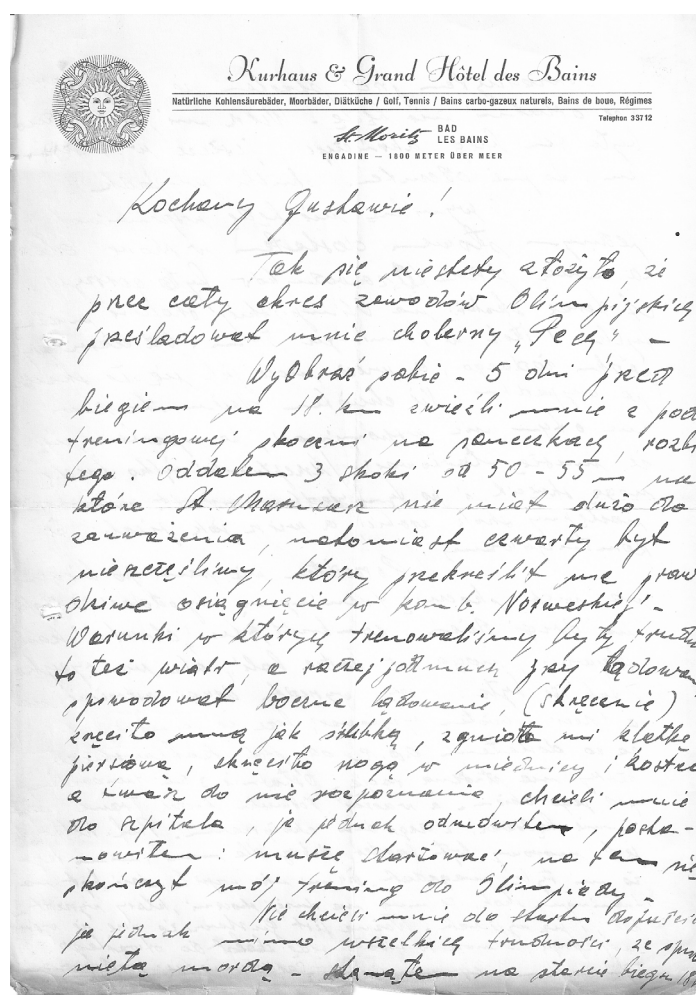 Kurhaus & Grand Hôtel des Bains
Natürliche Kohlensäurebäder, Moorbäder, Diätküche / Golf, Tennis / Bains carbo-gazeux naturels, Bains de boue, Régimes
Telephon 33712
St. Moritz BAD
LES BAINS
ENGADINE — 1800 METER ÜBER MEER
Kochany Gustawie!
Tak się niestety złożyło, że
prze cały okres zawodów Olimpijskich
prześladował mnie cholerny „Pech" —
Wyobraź sobie - 5 dni przed
biegiem na 18. km zwieźli mnie z pod
treningowej skoczni na saneczkach, rozbi
tego. Oddałem 3 skoki od 50 - 55 m na
które St. Marusarz nie miał dużo do
zauważenia, natomiast czwarty był
nieszczęśliwy, który przekreślił me praw
dziwe osiągnięcie w komb. Norweskiej -
Warunki w których trenowaliśmy były trudn
to też wiatr, a raczej podmuch przy lądowan
spowodował boczne lądowanie, (skręcenie)
kręciło mną jak śrubką, zgniotło mi klatkę
piersiową, skręciło nogę w miednicy i kostce
a twarz do nie rozpoznania, chcieli mnie
do szpitala, ja jednak odmówiłem, posta-
nowiłem: muszę startować, na tem się
skończył mój trening do Olimpiady
Nie chcieli mnie do startu dopuścić
ja jednak mimo wszelkich trudności, ze
mordą - stanąłem na starcie biegu 18